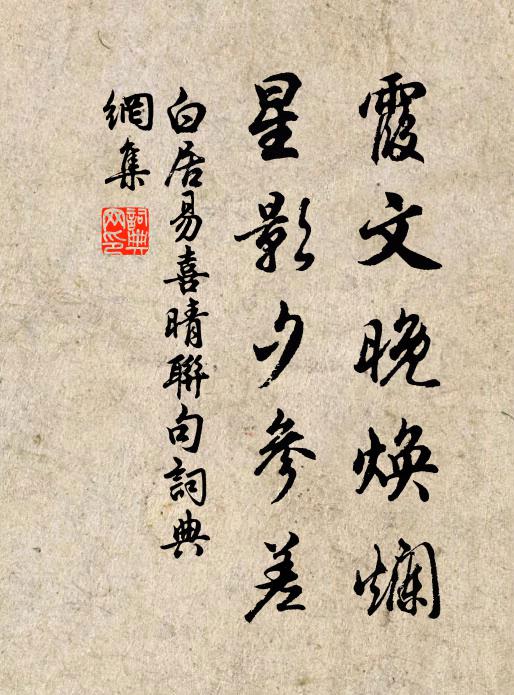 霞文晚煥爛
星影夕參差
白居易喜晴聯句詞典
網集
詞典網印